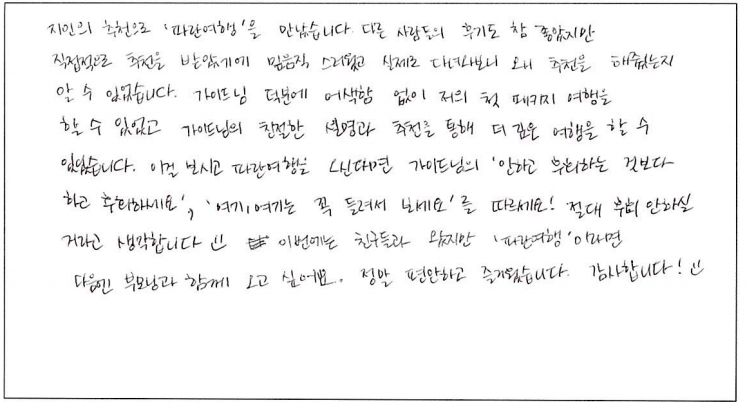 지인의 추천으로 '파란여행'을 만났습니다. 다른 사람들의 후기도 참 좋았지만
직접적으로 추천을 받았기에 믿음직 스러웠고 실제로 다녀와보니 왜 추천을 해줬는지
알 수 있었습니다. 가이드님 덕분에 어색함 없이 저의 첫 패키지 여행을
할 수 있었고 가이드님의 친절한 설명과 추천을 통해 더 깊은 여행을 할 수
있었습니다. 이걸 보시고 파란여행을 가신다면 가이드님의 '안하고 후회하는 것보다
하고 후회하세요', '여기, 여기는 꼭 들려서 보세요'를 따르세요! 절대 후회 안하실
거라고 생각합니다 이번에는 친구들과 왔지만 '파란여행'이라면
다음엔 부모님과 함께 오고 싶어요. 정말 편안하고 즐거웠습니다. 감사합니다!